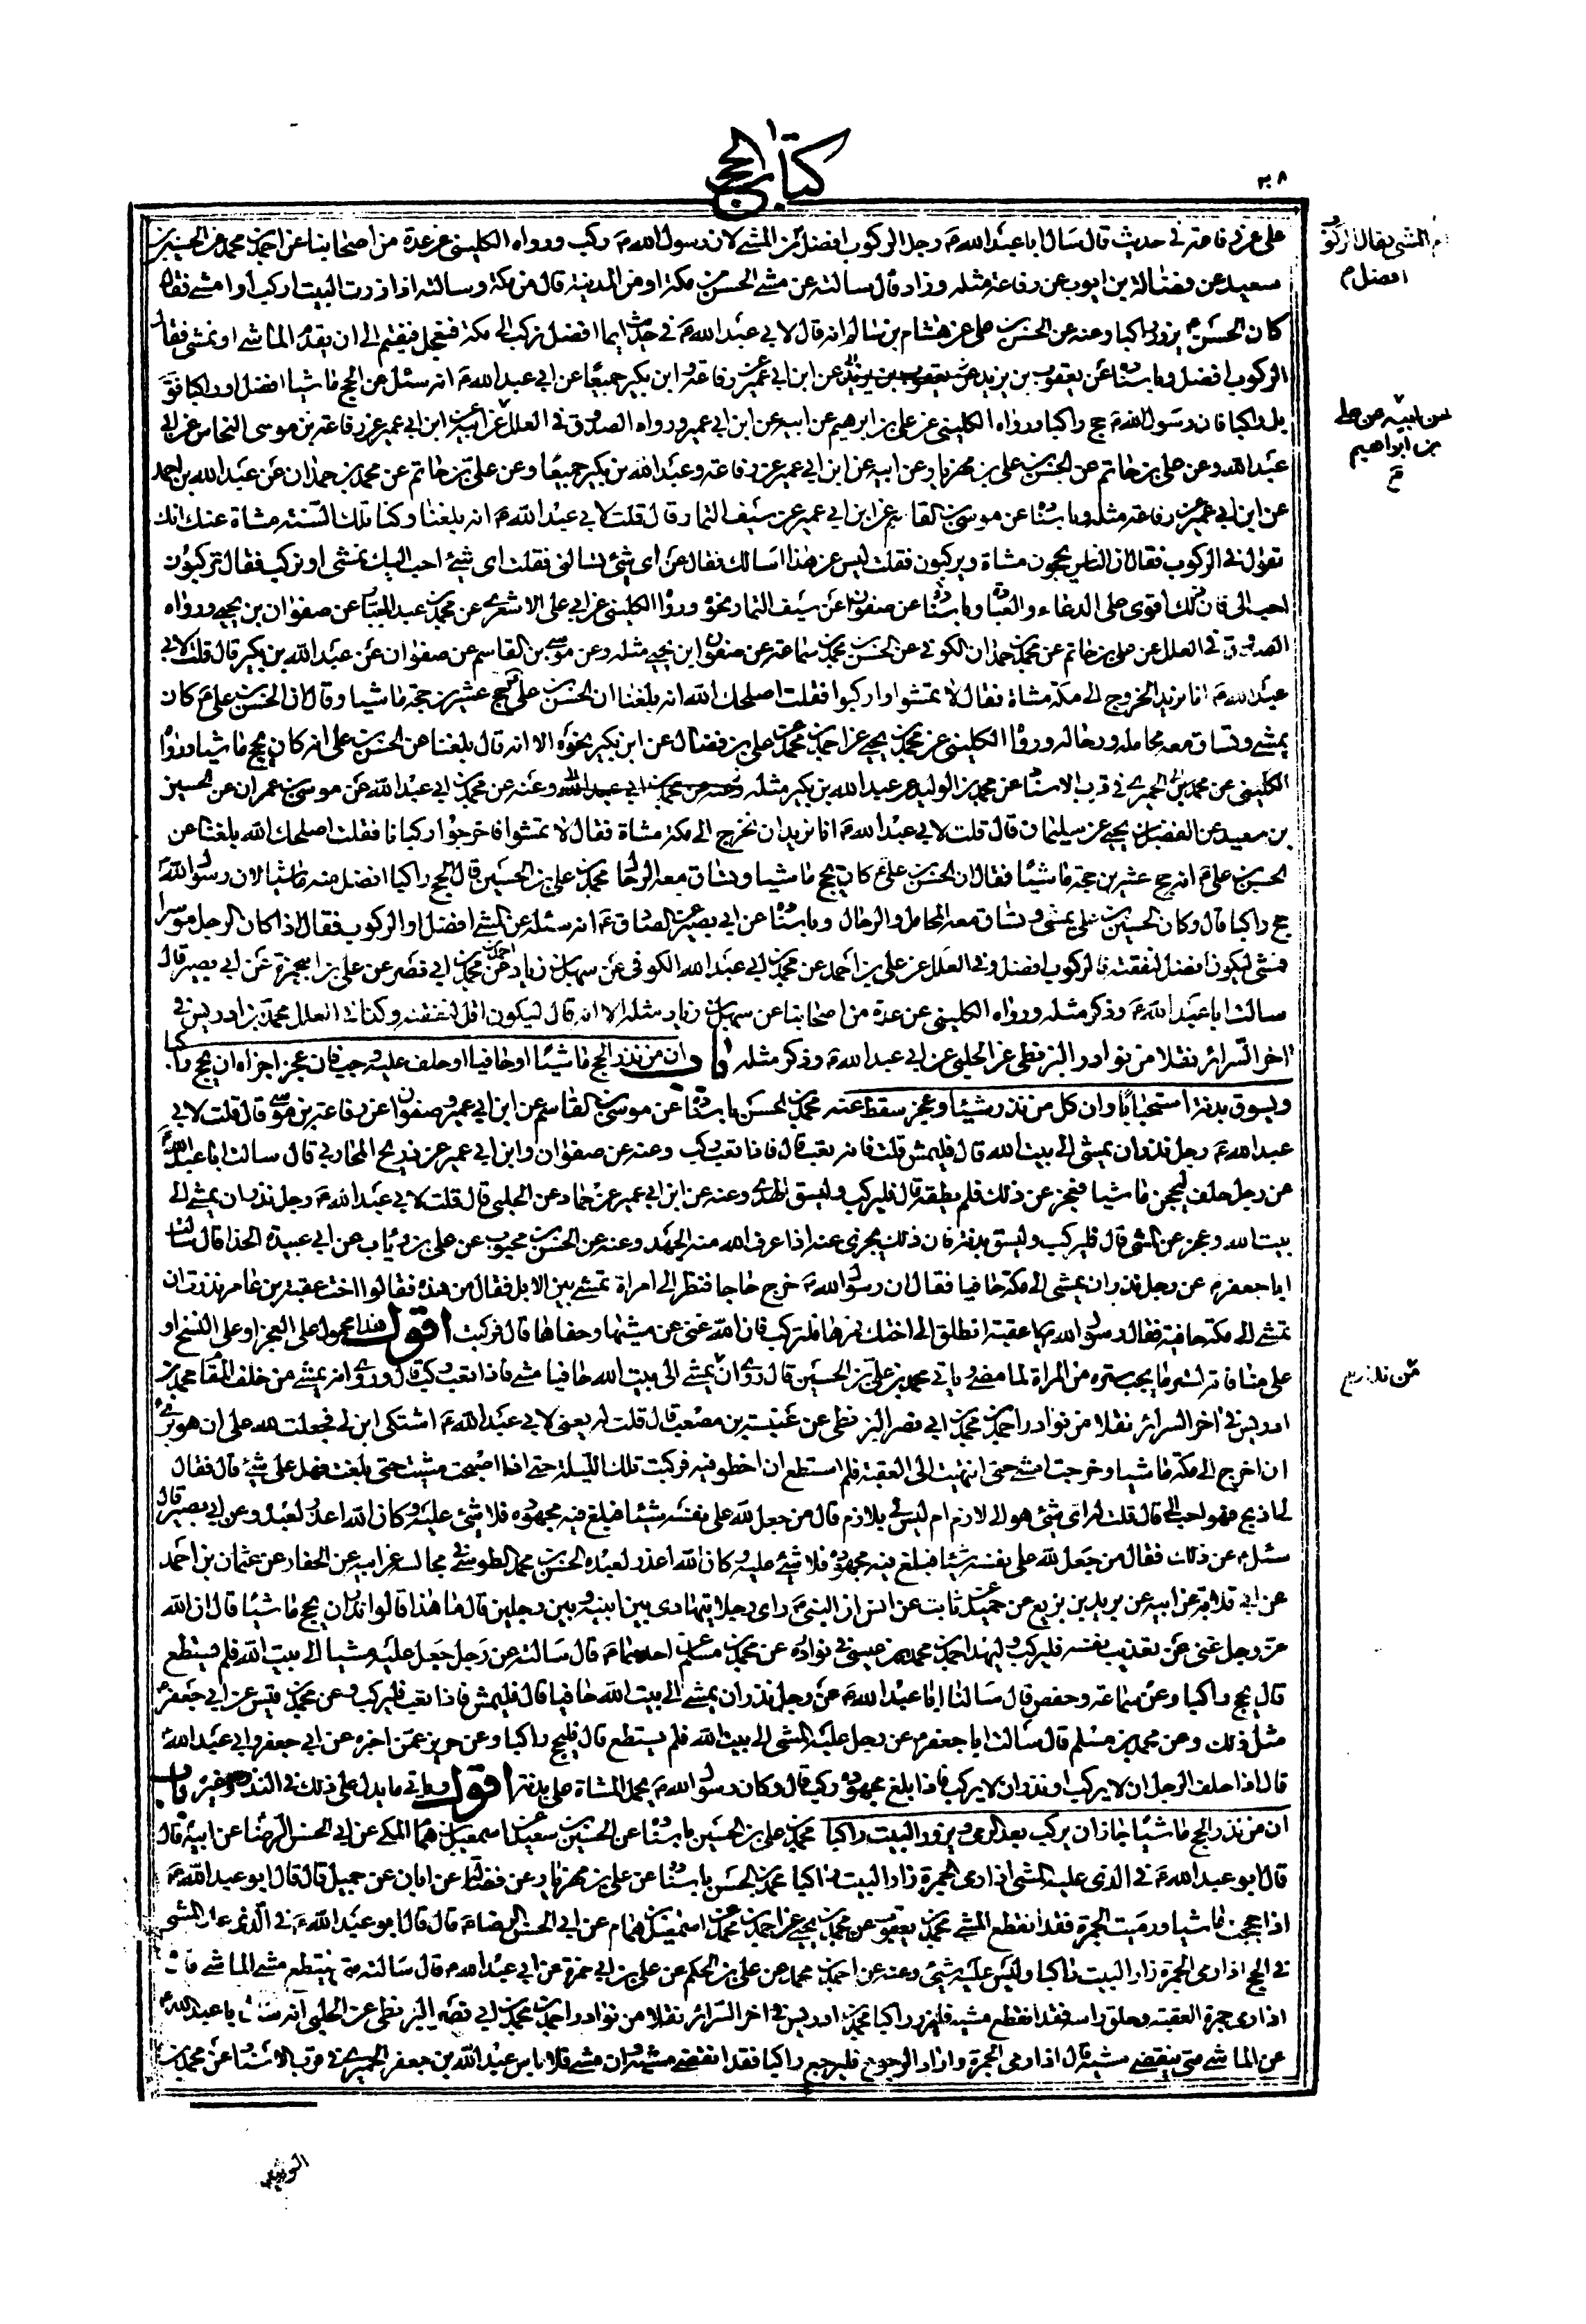 كتاب الحج
٣٠٨
علي عن رفاعة في حديث قال سال ابا عبد الله ع رجل الركوب افضل ام المشي لان رسول الله ص ركب ورواه الكليني عن عدة من اصحابنا عن احمد بن محمد عن الحسين بن
ام المشي فقال الركوب افضل م
سعيد عن فضالة بن ايوب عن رفاعة مثله وزاد قال سالته عن مشي الحسن من مكة او من المدينة قال من مكة وسالته اذا زرت البيت اركب او امشي فقال
كان الحسن ع يزور راكبا وعنه عن الحسن بن علي عن هشام بن سالم انه قال لابي عبد الله ع في حديث ايما افضل نركب الى مكة فنعجل فنقيم الى ان يقدم الماشي او نمشي فقال
الركوب افضل وباسناده عن يعقوب بن يزيد عن ابن ابي عمير عن رفاعة وابن بكير جميعا عن ابي عبد الله ع انه سئل عن الحج ماشيا افضل او راكبا فق
بل راكبا فان رسول الله ص حج راكبا ورواه الكليني عن علي بن ابرهيم عن ابيه عن ابن ابي عمير ورواه الصدوق في العلل عن ابيه عن ابن ابي عمير عن رفاعة بن موسى النخاس عن ابي
عن ابيه عن علي بن ابراهيم
عبد الله وعن علي بن حاتم عن الحسن بن علي بن مهزيار عن ابيه عن ابن ابي عمير عن رفاعة وعبد الله بن بكير جميعا وعن علي بن حاتم عن محمد بن حمدان عن عبد الله بن احمد
عن ابن ابي عمير عن رفاعة مثله وباسناده عن موسى بن القاسم عن ابن ابي عمير عن سيف التمار قال قلت لابي عبد الله ع انه بلغنا وكنا تلك السنة مشاة عنك انك
تقول في الركوب فقال ان الناس يحجون مشاة ويركبون فقلت ليس عن هذا اسالك فقال عن اي شئ تسالني فقلت اي شئ احب اليك نمشي او نركب فقال تركبون
احب الي فان ذلك اقوى على الدعاء والعبادة وباسناده عن صفوان عن سيف التمار نحوه ورواه الكليني عن ابي علي الاشعري عن محمد بن عبد الجبار عن صفوان بن يحيى ورواه
الصدوق في العلل عن علي بن حاتم عن محمد بن حمدان الكوفي عن الحسن بن محمد بن سماعة عن صفوان ابن يحيى مثله وعن موسى بن القاسم عن صفوان عن عبد الله بن بكير قال قلت لابي
عبد الله ع انا نريد الخروج الى مكة مشاة فقال لا تمشوا واركبوا فقلت اصلحك الله انه بلغنا ان الحسن بن علي ع حج عشرين حجة ماشيا وقال ان الحسن بن علي ع كان
يمشي وتساق معه محامله ورحاله ورواه الكليني عن محمد بن يحيى عن احمد بن محمد عن علي بن فضال عن ابن بكير نحوه الا انه قال بلغنا عن الحسن بن علي انه كان يحج ماشيا ورواه
الحميري في قرب الاسناد عن محمد بن الوليد عن عبد الله بن بكير مثله وعنه عن محمد بن ابي عبد الله عن موسى بن عمران عن الحسين
بن سعيد عن الفضل بن يحيى عن سليمان قال قلت لابي عبد الله ع انا نريد ان نخرج الى مكة مشاة فقال لا تمشوا فاخرجوا ركبانا فقلت اصلحك الله بلغنا عن
الحسن بن علي ع انه حج عشرين حجة ماشيا فقال ان الحسن بن علي ع كان يحج ماشيا وتساق معه الرحال محمد بن علي بن الحسين قال الحج راكبا افضل منه ماشيا لان رسول الله ص
حج راكبا قال وكان الحسين بن علي يمشي وتساق معه المحامل والرحال وباسناده عن ابي بصير عن الصادق ع انه سئله عن المشي افضل او الركوب فقال اذا كان الرجل موسرا
فمشى ليكون افضل لنفقته فالركوب افضل وفي العلل عن علي بن احمد عن محمد بن ابي عبد الله الكوفي عن سهل بن زياد عن احمد بن محمد بن ابي نصر عن علي بن ابي حمزة عن ابي بصير قال
سالت ابا عبد الله ع وذكر مثله ورواه الكليني عن عدة من اصحابنا عن سهل بن زياد مثله الا انه قال ليكون اقل لنفقته وكذا في العلل محمد بن ادريس في
اخر السرائر نقلا من نوادر البزنطي عن الحلبي عن ابي عبد الله ع وذكر مثله باب ان من نذر الحج ماشيا او حافيا او حلف عليه وجب فان عجز اجزاه ان يحج راكبا
ويسوق بدنة استحبابا وان كل من نذر شيئا وعجز سقط عنه محمد بن الحسن باسناده عن موسى بن القاسم عن ابن ابي عمير وصفوان عن رفاعة بن موسى قال قلت لابي
عبد الله ع رجل نذر ان يمشي الى بيت الله قال فليمش قلت فانه تعب قال فاذا تعب ركب وعنه عن صفوان وابن ابي عمير عن ذريح المحاربي قال سالت ابا عبد الله ع
عن رجل حلف ليحجن ماشيا فعجز عن ذلك فلم يطقه قال فليركب وليسق الهدي وعنه عن ابن ابي عمير عن حماد عن الحلبي قال قلت لابي عبد الله ع رجل نذر ان يمشي الى
بيت الله وعجز عن المشي قال فليركب وليسق بدنة فان ذلك يجزي عنه اذا عرف الله منه الجهد وعنه عن الحسن بن محبوب عن علي بن رئاب عن ابي عبيدة الحذا قال سالت
ابا جعفر ع عن رجل نذر ان يمشي الى مكة حافيا فقال ان رسول الله ص خرج حاجا فنظر الى امراة تمشي بين الابل فقال من هذه فقالوا اخت عقبة بن عامر نذرت ان
تمشي الى مكة حافية فقال رسول الله ص يا عقبة انطلق الى اختك فمرها فلتركب فان الله غني عن مشيها وحفاها قال فركبت اقول هذا محمول على العجز او على النسخ او
على منافاته لستر ما يجب ستره من المراة لما مضى وياتي محمد بن علي بن الحسين قال روي ان من نذر ان يمشي الى بيت الله حافيا مشى فاذا تعب ركب قال وروي انه يمشي من خلف المقام محمد بن
من نذر
ادريس في اخر السرائر نقلا من نوادر احمد بن محمد بن ابي نصر البزنطي عن عنبسة بن مصعب قال قلت له يعني لابي عبد الله ع اشتكى ابن لي فجعلت لله علي ان هو برئ
ان اخرج الى مكة ماشيا وخرجت امشي حتى انتهيت الى العقبة فلم استطع ان اخطو فيه فركبت تلك الليلة حتى اذا اصبحت مشيت حتى بلغت فهل علي شئ قال فقال
لي اذبح فهو احب الي قال قلت له اي شئ هو الي لازم ام ليس لي بلازم قال من جعل لله على نفسه شيئا فبلغ فيه مجهوده فلا شئ عليه وكان الله اعذر لعبده وعن ابي بصير قال
سئل ع عن ذلك فقال من جعل لله على نفسه شيئا فبلغ فيه مجهوده فلا شئ عليه وكان الله اعذر لعبده الحسن بن محمد الطوسي في مجالسه عن ابيه عن الحفار عن عثمان بن احمد
عن ابي قلابة عن ابيه عن يزيد بن بزيع عن حميد عن ثابت عن انس ان النبي ص راى رجلا يتهادى بين ابنيه وبين رجلين قال ما هذا قالوا نذر ان يحج ماشيا قال ان الله
عز وجل غني عن تعذيب نفسه فليركب وليهد احمد بن محمد بن عيسى في نوادره عن محمد بن مسلم عن احدهما ع قال سالته عن رجل جعل عليه مشيا الى بيت الله فلم يستطع
قال يحج راكبا وعن سماعة وحفص قال سالنا ابا عبد الله ع عن رجل نذر ان يمشي الى بيت الله حافيا قال فليمش فاذا تعب فليركب وعن محمد بن قيس عن ابي جعفر ع
مثل ذلك وعن محمد بن مسلم قال سالت ابا جعفر ع عن رجل عليه المشي الى بيت الله فلم يستطع قال فليحج راكبا وعن حريز عمن اخبره عن ابي جعفر وابي عبد الله ع
قال اذا حلف الرجل ان لا يركب او نذر ان لا يركب فاذا بلغ مجهوده ركب قال وكان رسول الله ص يحمل المشاة على بدنة اقول وياتي ما يدل على ذلك في النذر وغيره باب
ان من نذر الحج ماشيا جاز ان يركب بعد الرمي ويزور البيت راكبا محمد بن علي بن الحسين باسناده عن الحسين بن سعيد عن اسمعيل بن همام المكي عن ابي الحسن الرضا عن ابيه قال
قال ابو عبد الله ع في الذي عليه المشي اذا رمى الجمرة زار البيت راكبا محمد بن الحسن باسناده عن علي بن مهزيار عن فضالة عن ابان عن جميل قال قال ابو عبد الله ع
اذا حججت ماشيا ورميت الجمرة فقد انقطع المشي محمد بن يعقوب عن محمد بن يحيى عن احمد بن محمد عن اسمعيل بن همام عن ابي الحسن الرضا ع قال قال ابو عبد الله ع في الذي عليه المشي
في الحج اذا رمى الجمرة زار البيت راكبا وليس عليه شئ وعنه عن احمد بن محمد عن علي بن الحكم عن علي بن ابي حمزة عن ابي عبد الله ع قال سالته متى ينقطع مشي الماشي قال
اذا رمى جمرة العقبة وحلق راسه فقد انقطع مشيه فليزر راكبا محمد بن ادريس في اخر السرائر نقلا من نوادر احمد بن محمد بن ابي نصر البزنطي عن الحلبي انه سال ابا عبد الله ع
عن الماشي متى ينقضي مشيه قال اذا رمى الجمرة واراد الرجوع فليرجع راكبا فقد انقضى مشيه وان مشى فلا باس عبد الله بن جعفر الحميري في قرب الاسناد عن محمد بن